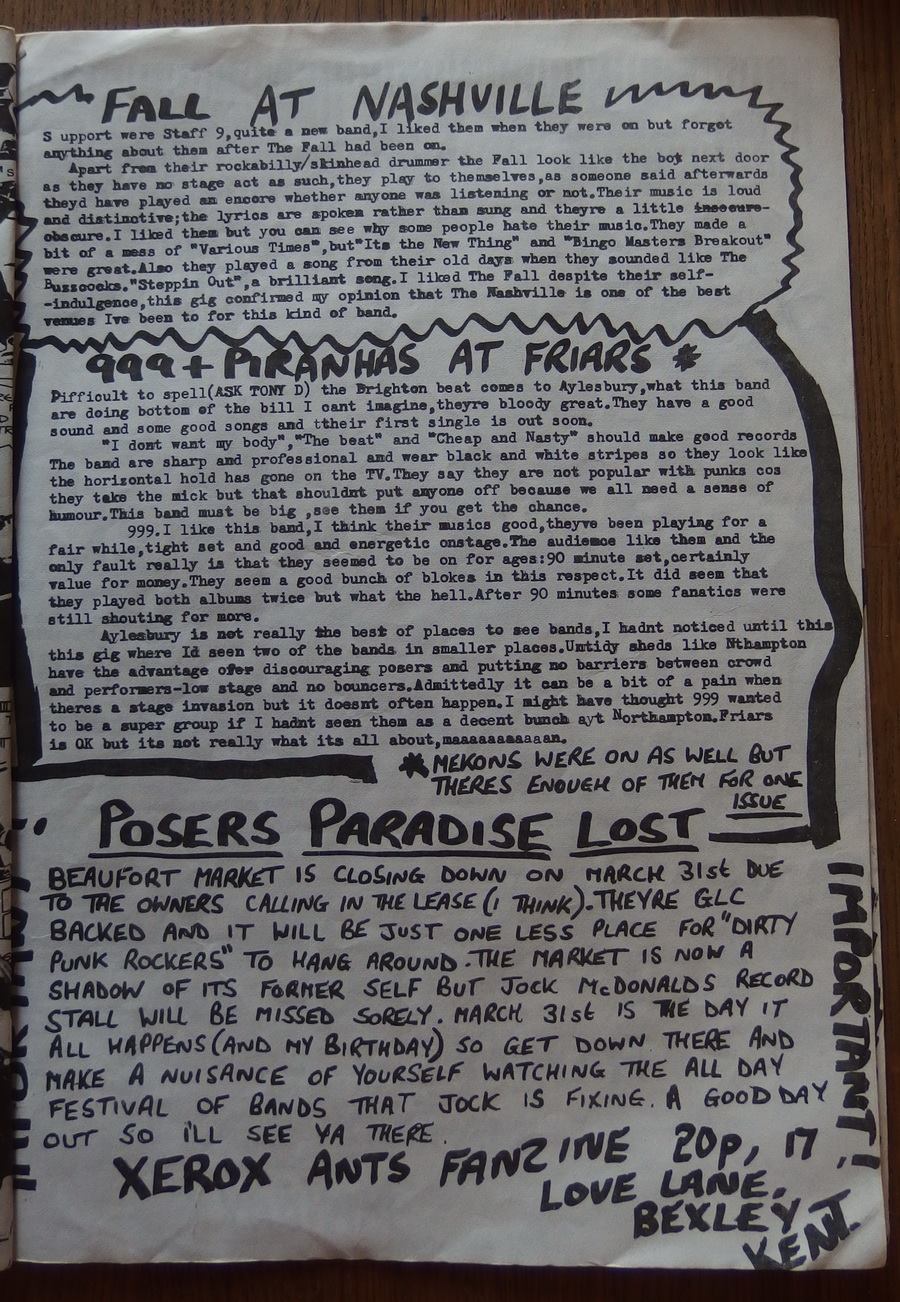 FALL AT NASHVILLE
S upport were Staff 9,quite a new band,I liked them when they were on but forgot
anything about them after The Fall had been on.
Apart from their rockabilly/skinhead drummer the Fall look like the bot next door
as they have no stage act as such,they play to themselves,as someone said afterwards
theyd have played an encore whether anyone was listening or not.Their music is loud
and distinctive;the lyrics are spoken rather than sung and theyre a little insecure-
obscure.I liked them but you can see why some people hate their music.They made a
bit of a mess of "Various Times",but"Its the New Thing" and "Bingo Masters Breakout"
were great.Also they played a song from their old days when they sounded like The
Buzzcocks."Steppin Out",a brilliant song.I liked The Fall despite their self-
-indulgence,this gig confirmed my opinion that The Nashville is one of the best
venues Ive been to for this kind of band.
999+PIRANHAS AT FRIARS *
Difficult to spell(ASK TONY D) the Brighton beat comes to Aylesbury,what this band
are doing bottom of the bill I cant imagine,theyre bloody great.They have a good
sound and some good songs and ttheir first single is out soon.
"I dont want my body","The beat" and "Cheap and Nasty" should make good records
The band are sharp and professional and wear black and white stripes so they look like
the horizontal hold has gone on the TV.They say they are not popular with punks cos
they take the mick but that shouldnt put anyone off because we all need a sense of
humour.This band must be big ,see them if you get the chance.
999.I like this band,I think their musics good,theyve been playing for a
fair while,tight set and good and energetic onstage.The audience like them and the
only fault really is that they seemed to be on for ages:90 minute set,certainly
value for money.They seem a good bunch of blokes in this respect.It did seem that
they played both albums twice but what the hell.After 90 minutes some fanatics were
still shouting for more.
Aylesbury is not really the best of places to see bands,I hadnt noticed until this
this gig where Id seen two of the bands in smaller places.Untidy sheds like Nthampton
have the advantage ofer discouraging posers and putting no barriers between crowd
and performers-low stage and no bouncers.Admittedly it can be a bit of a pain when
theres a stage invasion but it doesnt often happen.I might have thought 999 wanted
to be a super group if I hadnt seen them as a decent bunch ayt Northampton.Friars
is OK but its not really what its all about,maaaaaaaaaaan.
* MEKONS WERE ON AS WELL BUT
THERES ENOUGH OF THEM FOR ONE
ISSUE
POSERS PARADISE LOST
BEAUFORT MARKET IS CLOSING DOWN ON MARCH 31st DUE
TO THE OWNERS CALLING IN THE LEASE (I THINK).THEYRE GLC
BACKED AND IT WILL BE JUST ONE LESS PLACE FOR "DIRTY
PUNK ROCKERS" TO HANG AROUND.THE MARKET IS NOW A
SHADOW OF ITS FORMER SELF BUT JOCK McDONALDS RECORD
STALL WILL BE MISSED SORELY. MARCH 31st IS THE DAY IT
ALL HAPPENS(AND MY BIRTHDAY) SO GET DOWN THERE AND
MAKE A NUISANCE OF YOURSELF WATCHING THE ALL DAY
FESTIVAL OF BANDS THAT JOCK IS FIXING. A GOOD DAY
OUT SO i'LL SEE YA THERE.
IMPORTANT!
XEROX ANTS FANZINE 20p, 17
LOVE LANE,
BEXLEY
KENT.